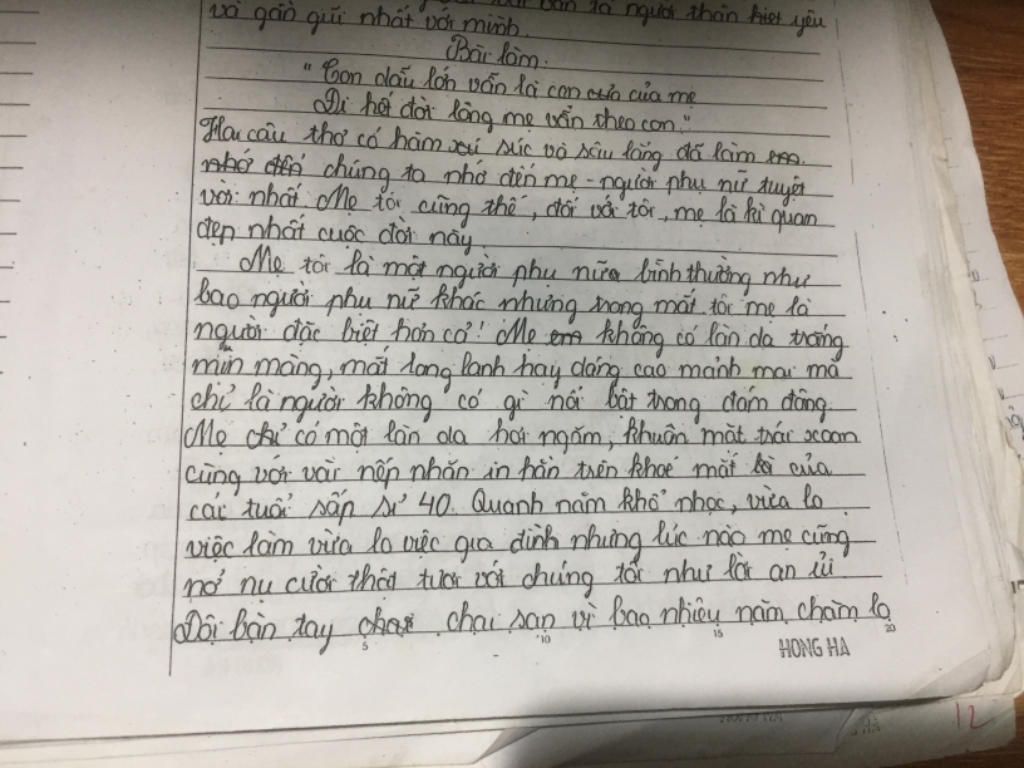 văn tả người thân biết yêu
và gần gũi nhất với mình.
Bài làm.
"Con dẫu lớn vẫn là con của của mẹ
Đi hết đời lòng mẹ vẫn theo con."
Hai câu thơ có hàm xú súc và sâu lắng đã làm em
nhớ đến chúng ta nhớ đến mẹ - người phụ nữ tuyệt
vời nhất. Mẹ tôi cũng thế, đối với tôi, mẹ là kì quan
đẹp nhất cuộc đời này.
Mẹ tôi là một người phụ nữa bình thường như
bao người phụ nữ khác nhưng trong mắt tôi mẹ là
người đặc biệt hơn cả! Mẹ em không có làn da trắng
mịn màng, mắt long lanh hay dáng cao mảnh mai mà
chỉ là người không có gì nổi bật trong đám đông.
Mẹ chỉ có một làn da hơi ngăm, khuôn mặt trái xoan
cùng với vài nếp nhăn in hằn trên khoé mắt của
cái tuổi sấp sỉ 40. Quanh năm khổ nhọc, vừa lo
việc làm vừa lo việc gia đình nhưng lúc nào mẹ cũng
nở nụ cười thật tươi với chúng tôi như lời an ủi.
Đôi bàn tay chai sạn vì bao nhiêu năm chăm lo
5 10 15 20
HONG HA
12